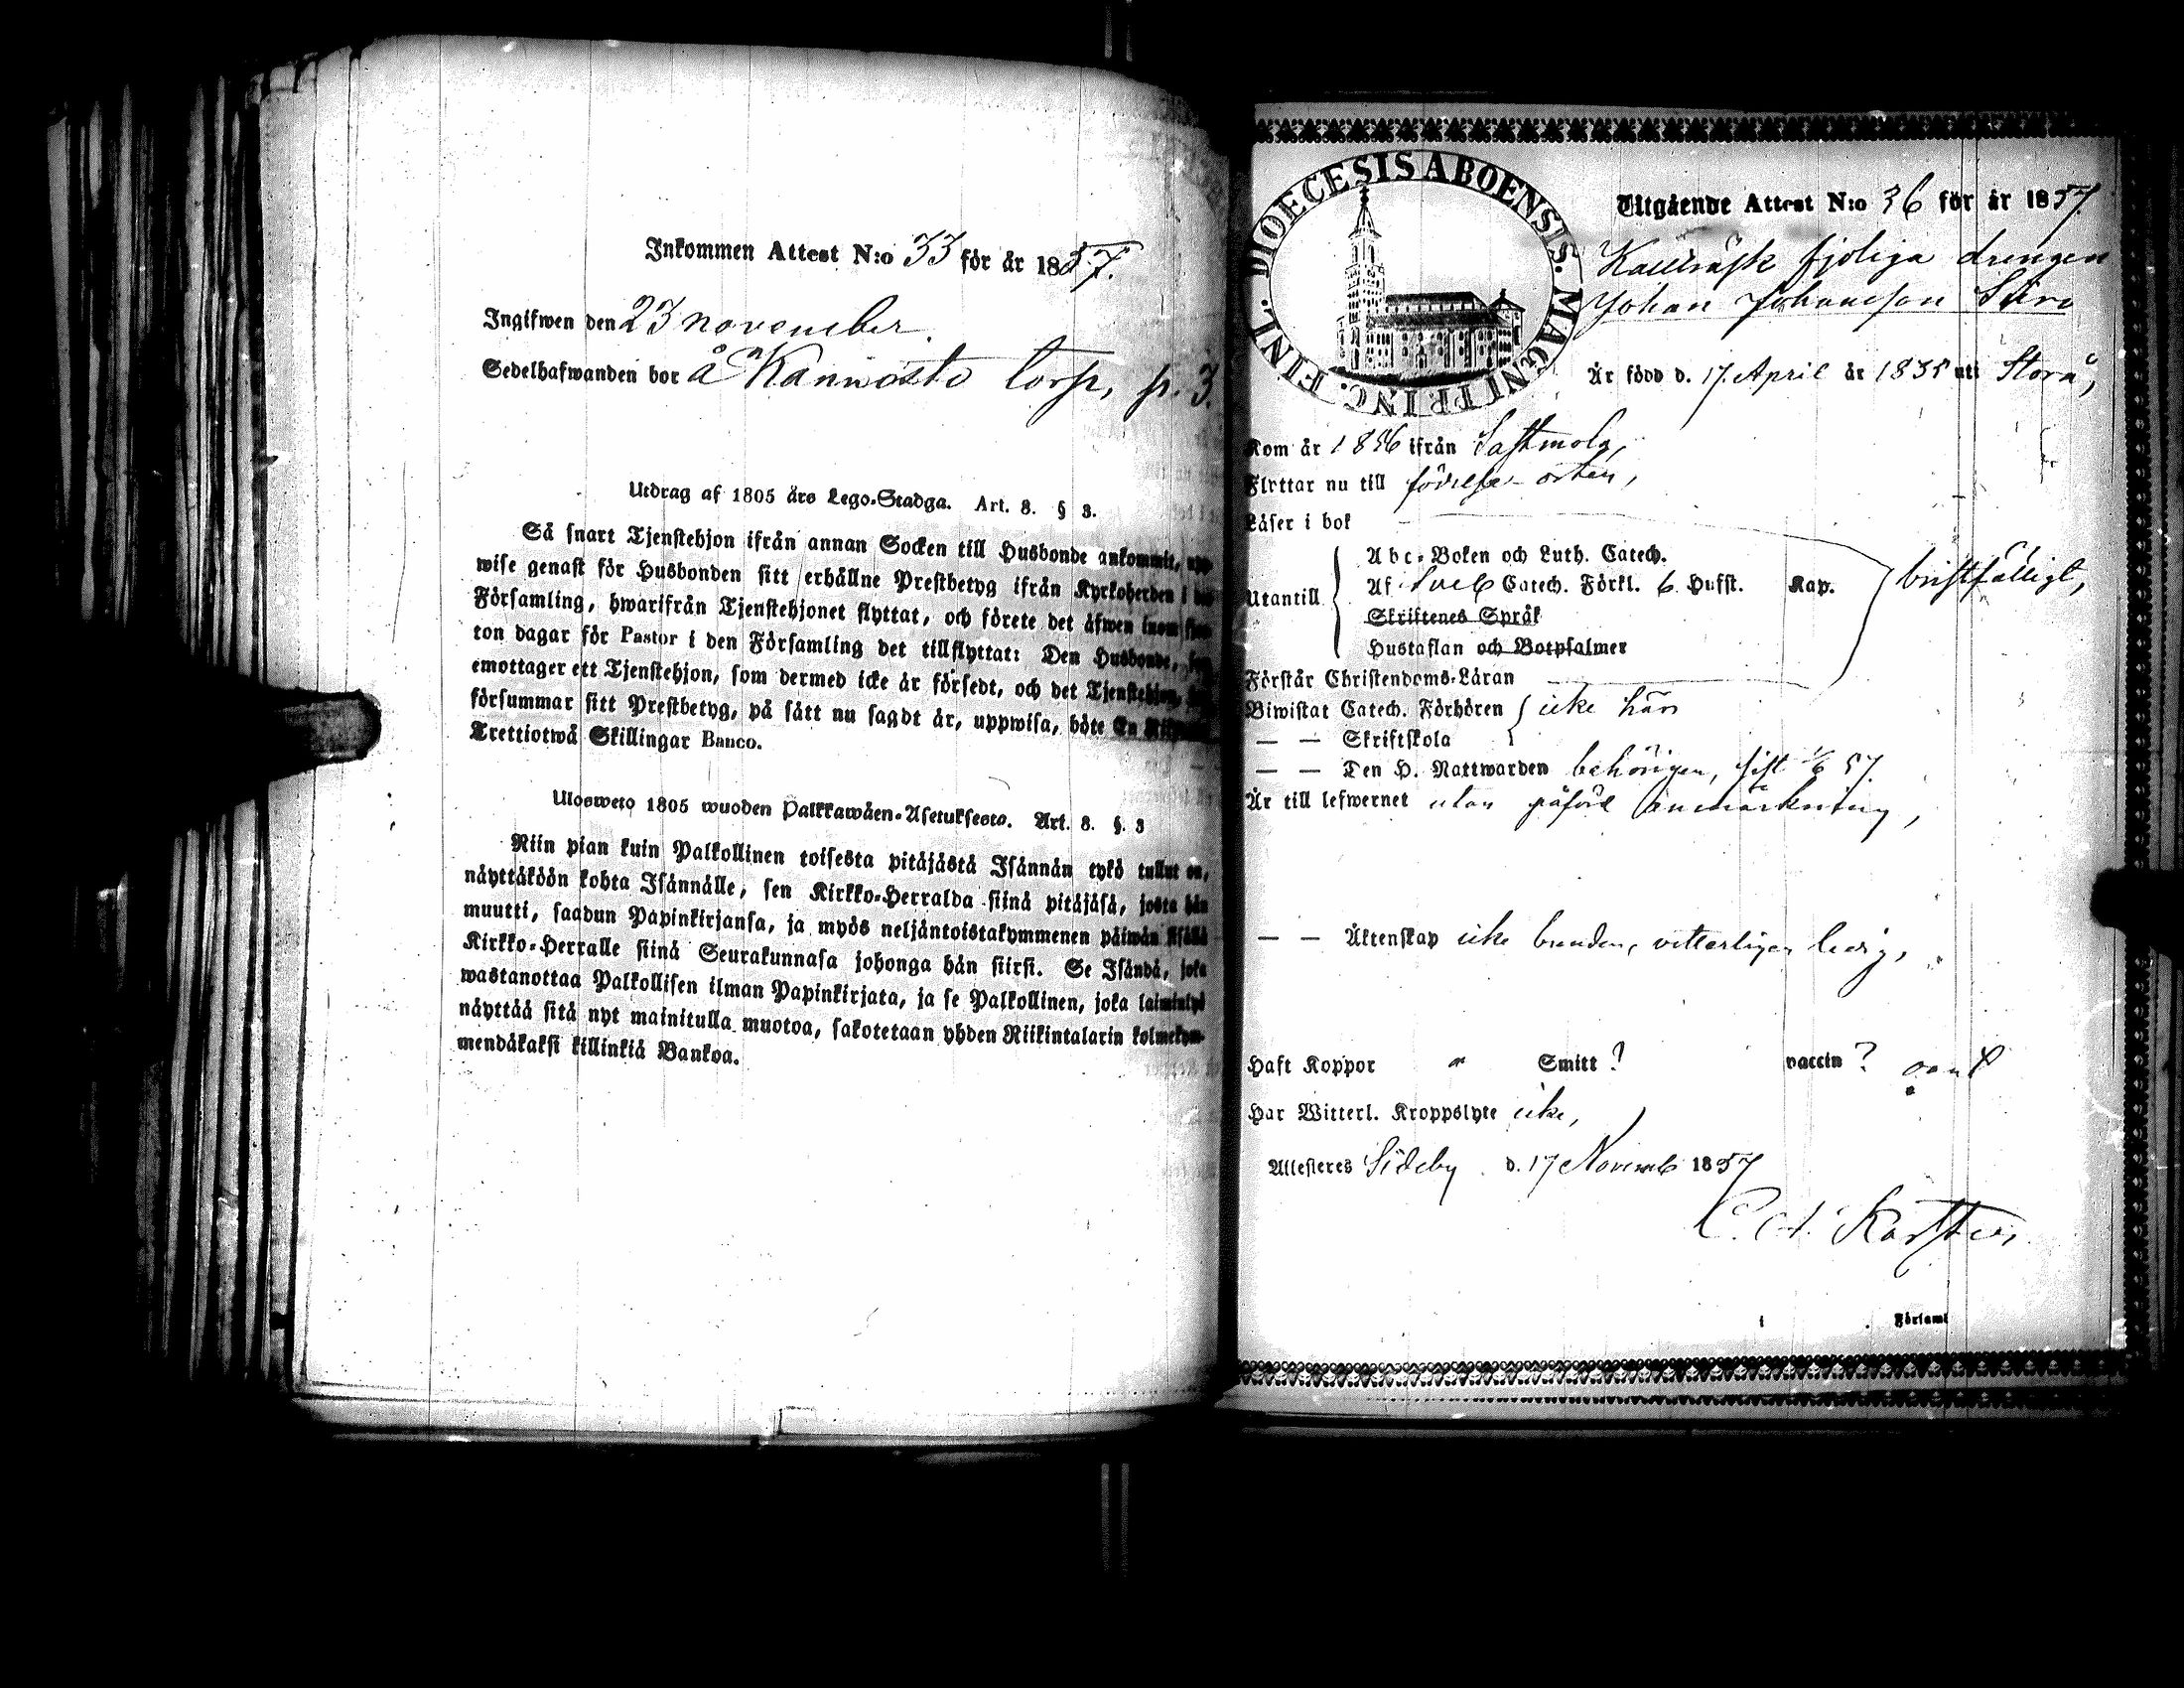 Inkommen Attest N:o 33 för år 1857.
Ingifwen den 23 november
Sedelhafwanden bor å Kannosto torp, p. 3.
Utdrag af 1805 års Lego-Stadga. Art. 8. § 3.
Så snart Tjenstehjon ifrån annan Socken till Husbonde ankommit, upp-
wise genast för Husbonden sitt erhållne Prestbetyg ifrån Kyrkoherden i
Församling, hwarifrån Tjenstehjonet flyttat, och förete det äfwen inom
ton dagar för Pastor i den Församling det tillflyttat: Den Husbonde,
emottager ett Tjenstehjon, som dermed icke är försedt, och det Tjenstehjon,
försummar sitt Prestbetyg, på sätt nu sagdt är, uppwisa, böte En
Trettiotwå Skillingar Banco.
Ulosweto 1805 wuoden Palkkawäen-Asetuksesta. Art. 8. §. 3
Niin pian kuin Palkollinen toisesta pitäjästä Isännän tykö tullut on,
näyttäköön kohta Isännälle, sen Kirkko-Herralda siinä pitäjäsä, josta hän
muutti, saadun Papinkirjansa, ja myös neljäntoistakymmenen päiwän sisällä
Kirkko-Herralle siinä Seurakunnasa johonga hän siirsi. Se Isändä, joka
wastanottaa Palkollisen ilman Papinkirjata, ja se Palkollinen, joka laiminlyö
näyttää sitä nyt mainitulla muotoa, sakotetaan yhden Riikintalarin kolmekym-
mendäkaksi killinkiä Bankoa.
DIOECESIS ABOENSIS. MAGNI PRINC. FINL.
Utgående Attest N:o 36 för år 1857.
drengen
Johan Johansson
Är född d. 17. April år 1835 uti Storå,
Kom år 1856 ifrån Sastmola,
Flyttar nu till födelse-orten,
Läser i bok
Utantill
Abc-Boken och Luth. Catech.
Af Sveb Catech. Förkl. 6 Hufst. Kap.
Skriftenes Språk
Hustaflan och Botpsalmer
bristfälligt,
Förstår Christendoms-Läran
Biwistat Catech. Förhören icke här
— — Skriftskola
— — Den H. Nattwarden behörigen, sist 1/6 57.
Är till lefwernet utan påförd anmärkning,
— — Äktenskap icke bunden, vetterligen ledig,
Haft Koppor " Smitt ? vaccin ?
Har Witterl. Kroppslyte icke,
Attesteres Sideby d. 17 Novemb 1857
Karsten
i Församl